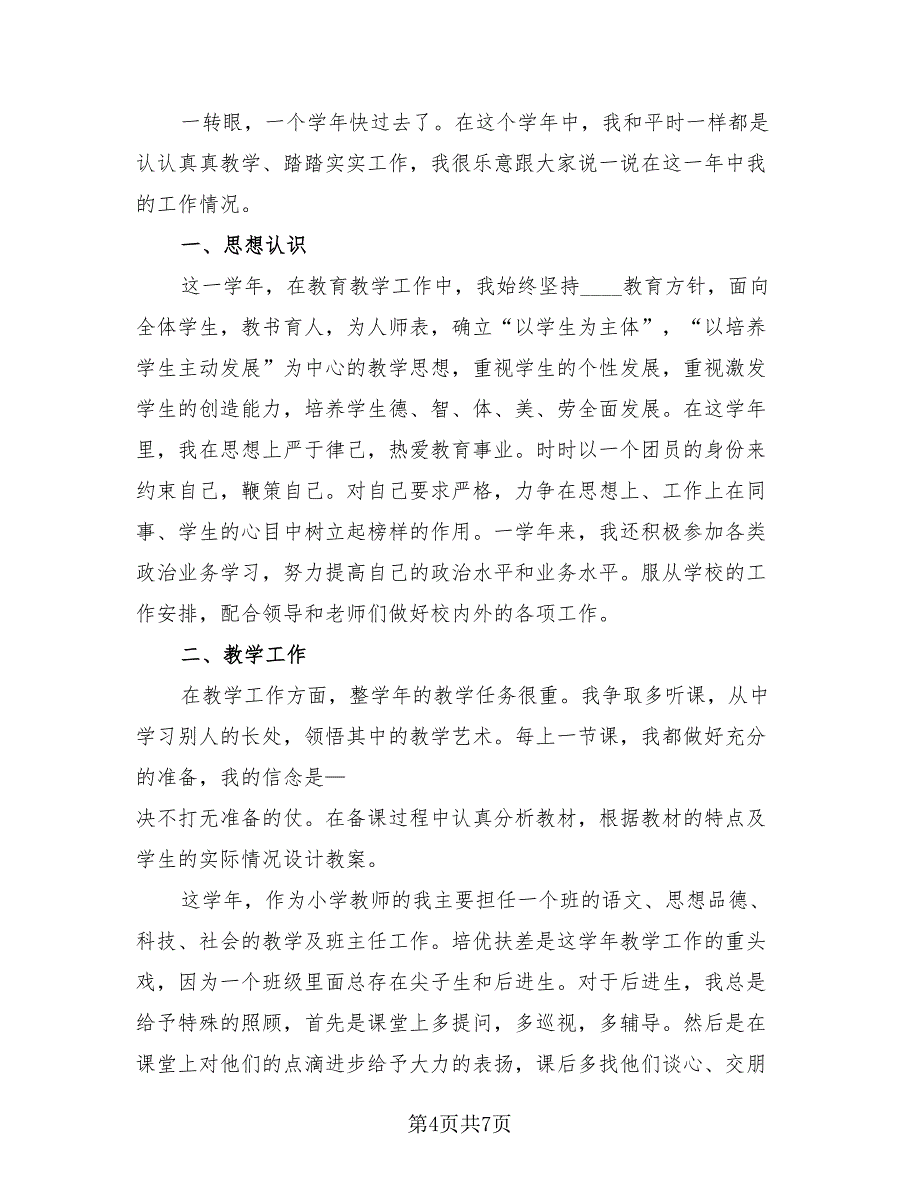 一转眼，一个学年快过去了。在这个学年中，我和平时一样都是
认认真真教学、踏踏实实工作，我很乐意跟大家说一说在这一年中我
的工作情况。
一、思想认识
这一学年，在教育教学工作中，我始终坚持____教育方针，面向
全体学生，教书育人，为人师表，确立“以学生为主体”，“以培养
学生主动发展”为中心的教学思想，重视学生的个性发展，重视激发
学生的创造能力，培养学生德、智、体、美、劳全面发展。在这学年
里，我在思想上严于律己，热爱教育事业。时时以一个团员的身份来
约束自己，鞭策自己。对自己要求严格，力争在思想上、工作上在同
事、学生的心目中树立起榜样的作用。一学年来，我还积极参加各类
政治业务学习，努力提高自己的政治水平和业务水平。服从学校的工
作安排，配合领导和老师们做好校内外的各项工作。
二、教学工作
在教学工作方面，整学年的教学任务很重。我争取多听课，从中
学习别人的长处，领悟其中的教学艺术。每上一节课，我都做好充分
的准备，我的信念是—
决不打无准备的仗。在备课过程中认真分析教材，根据教材的特点及
学生的实际情况设计教案。
这学年，作为小学教师的我主要担任一个班的语文、思想品德、
科技、社会的教学及班主任工作。培优扶差是这学年教学工作的重头
戏，因为一个班级里面总存在尖子生和后进生。对于后进生，我总是
给予特殊的照顾，首先是课堂上多提问，多巡视，多辅导。然后是在
课堂上对他们的点滴进步给予大力的表扬，课后多找他们谈心、交朋
第4页共7页